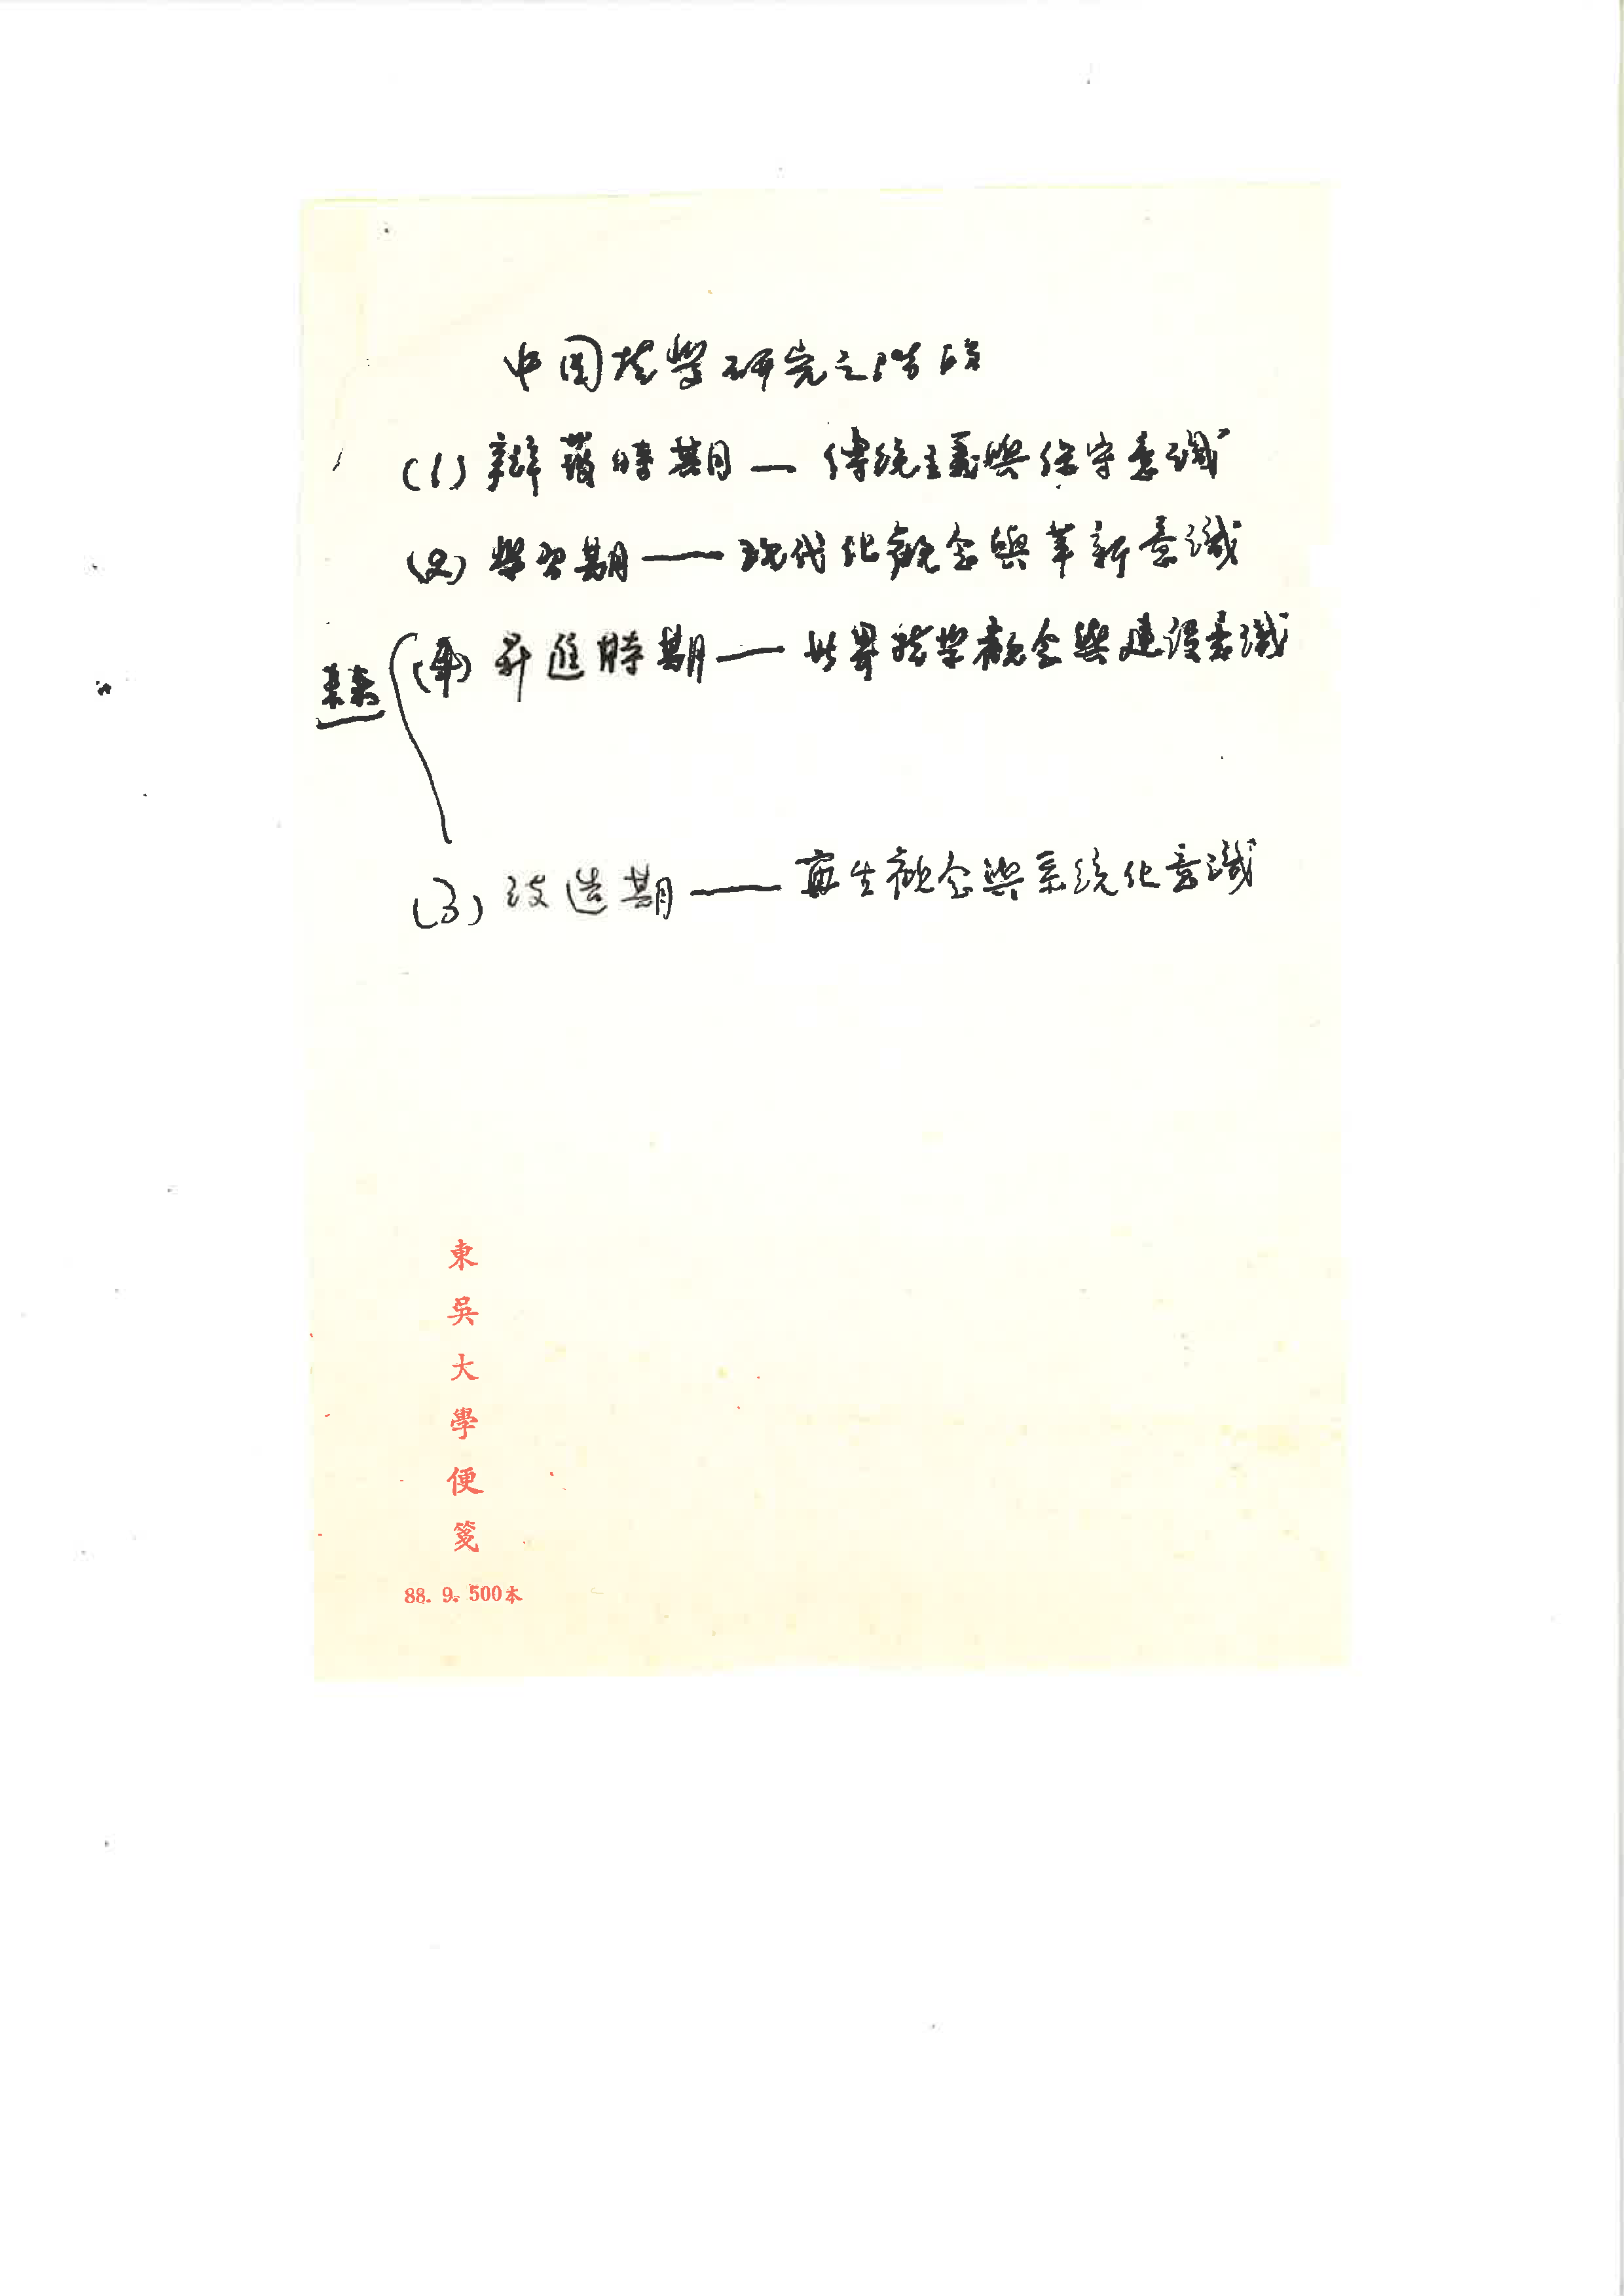 中国哲學研究之階段
(1) 辯護時期 — 傳統主義與保守意識
(2) 學習期 — 現代化觀念與革新意識
(4) 昇進時期 — 世界哲学觀念與建設意識
未來
(3) 改造期 — 再生觀念與系統化意識
東吳大學便箋
88. 9. 500本